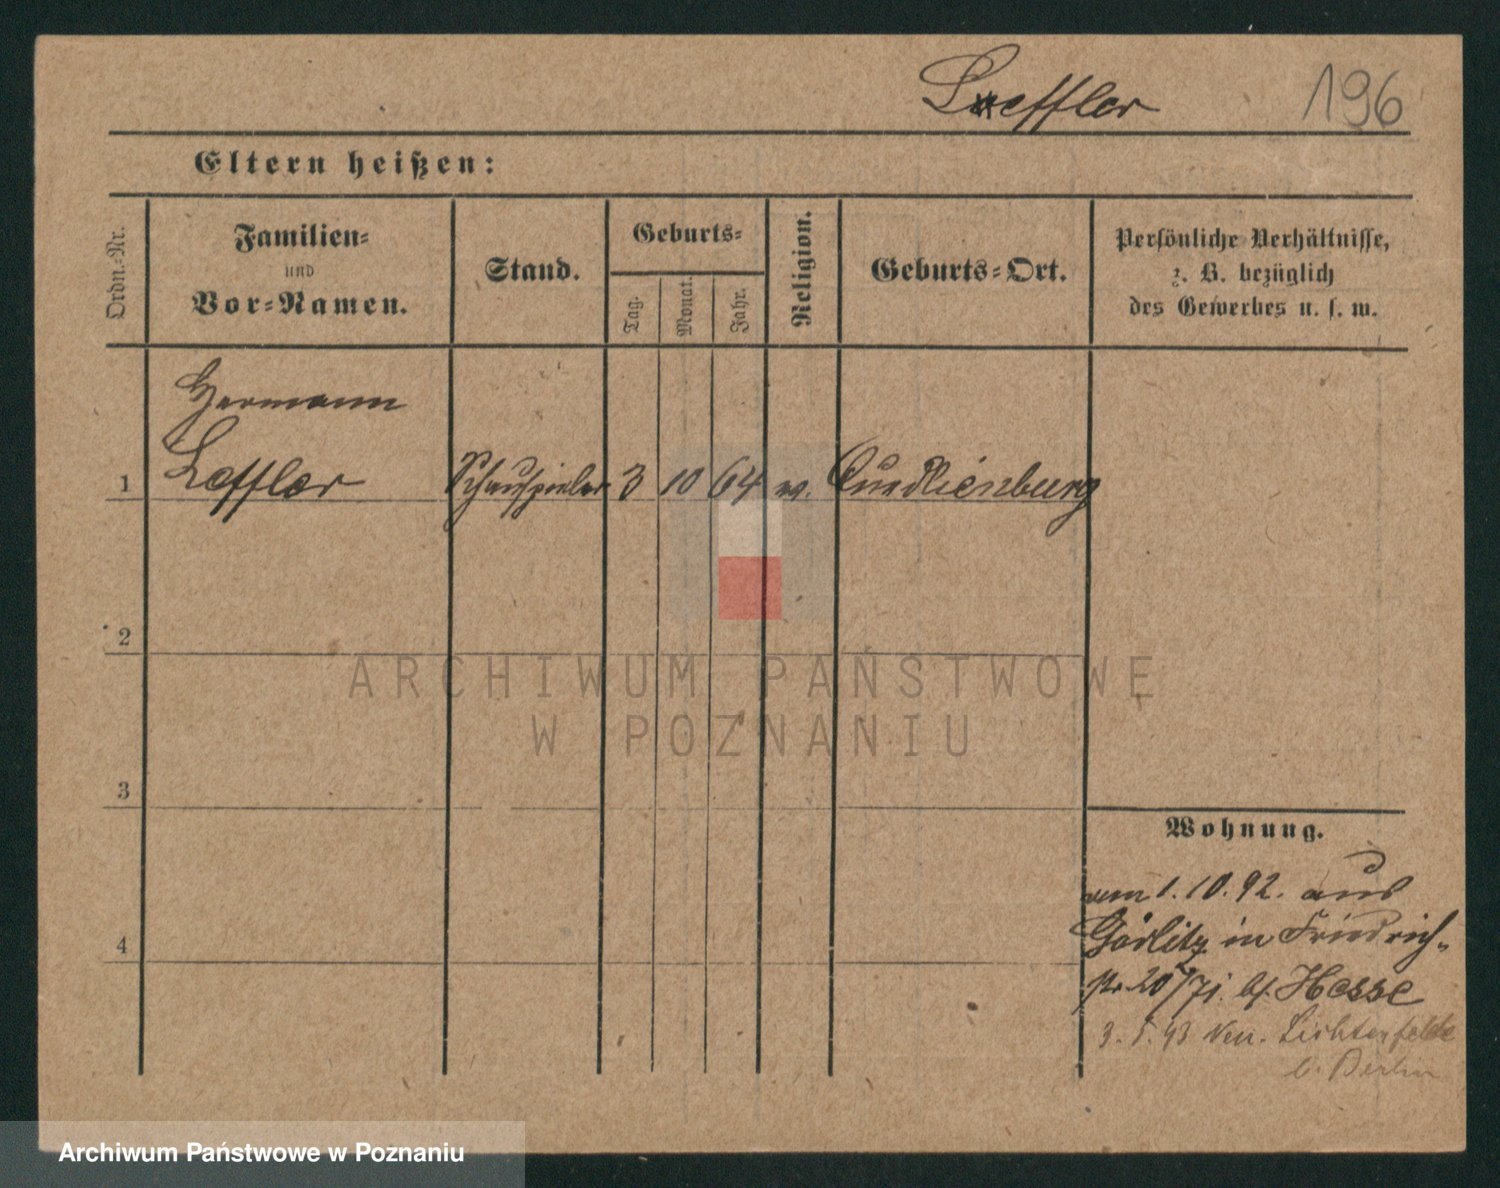 Loeffler 196
Eltern heißen:
Ordn.-Nr.
Familien-
und
Vor-Namen.
Stand.
Geburts-
Tag.
Monat.
Jahr.
Religion.
Geburts-Ort.
Persönliche Verhältnisse,
z. B. bezüglich
des Gewerbes u. s. w.
Hermann
1 Loeffler Schauspieler 3 10 64 ev. Quedlienburg
2
3
4
Wohnung.
1.10.92. aus
Görlitz in Friedrich-
str. 20 b/ Hesse
Lichterfelde
b. Berlin
ARCHIWUM PAŃSTWOWE
W POZNANIU
Archiwum Państwowe w Poznaniu